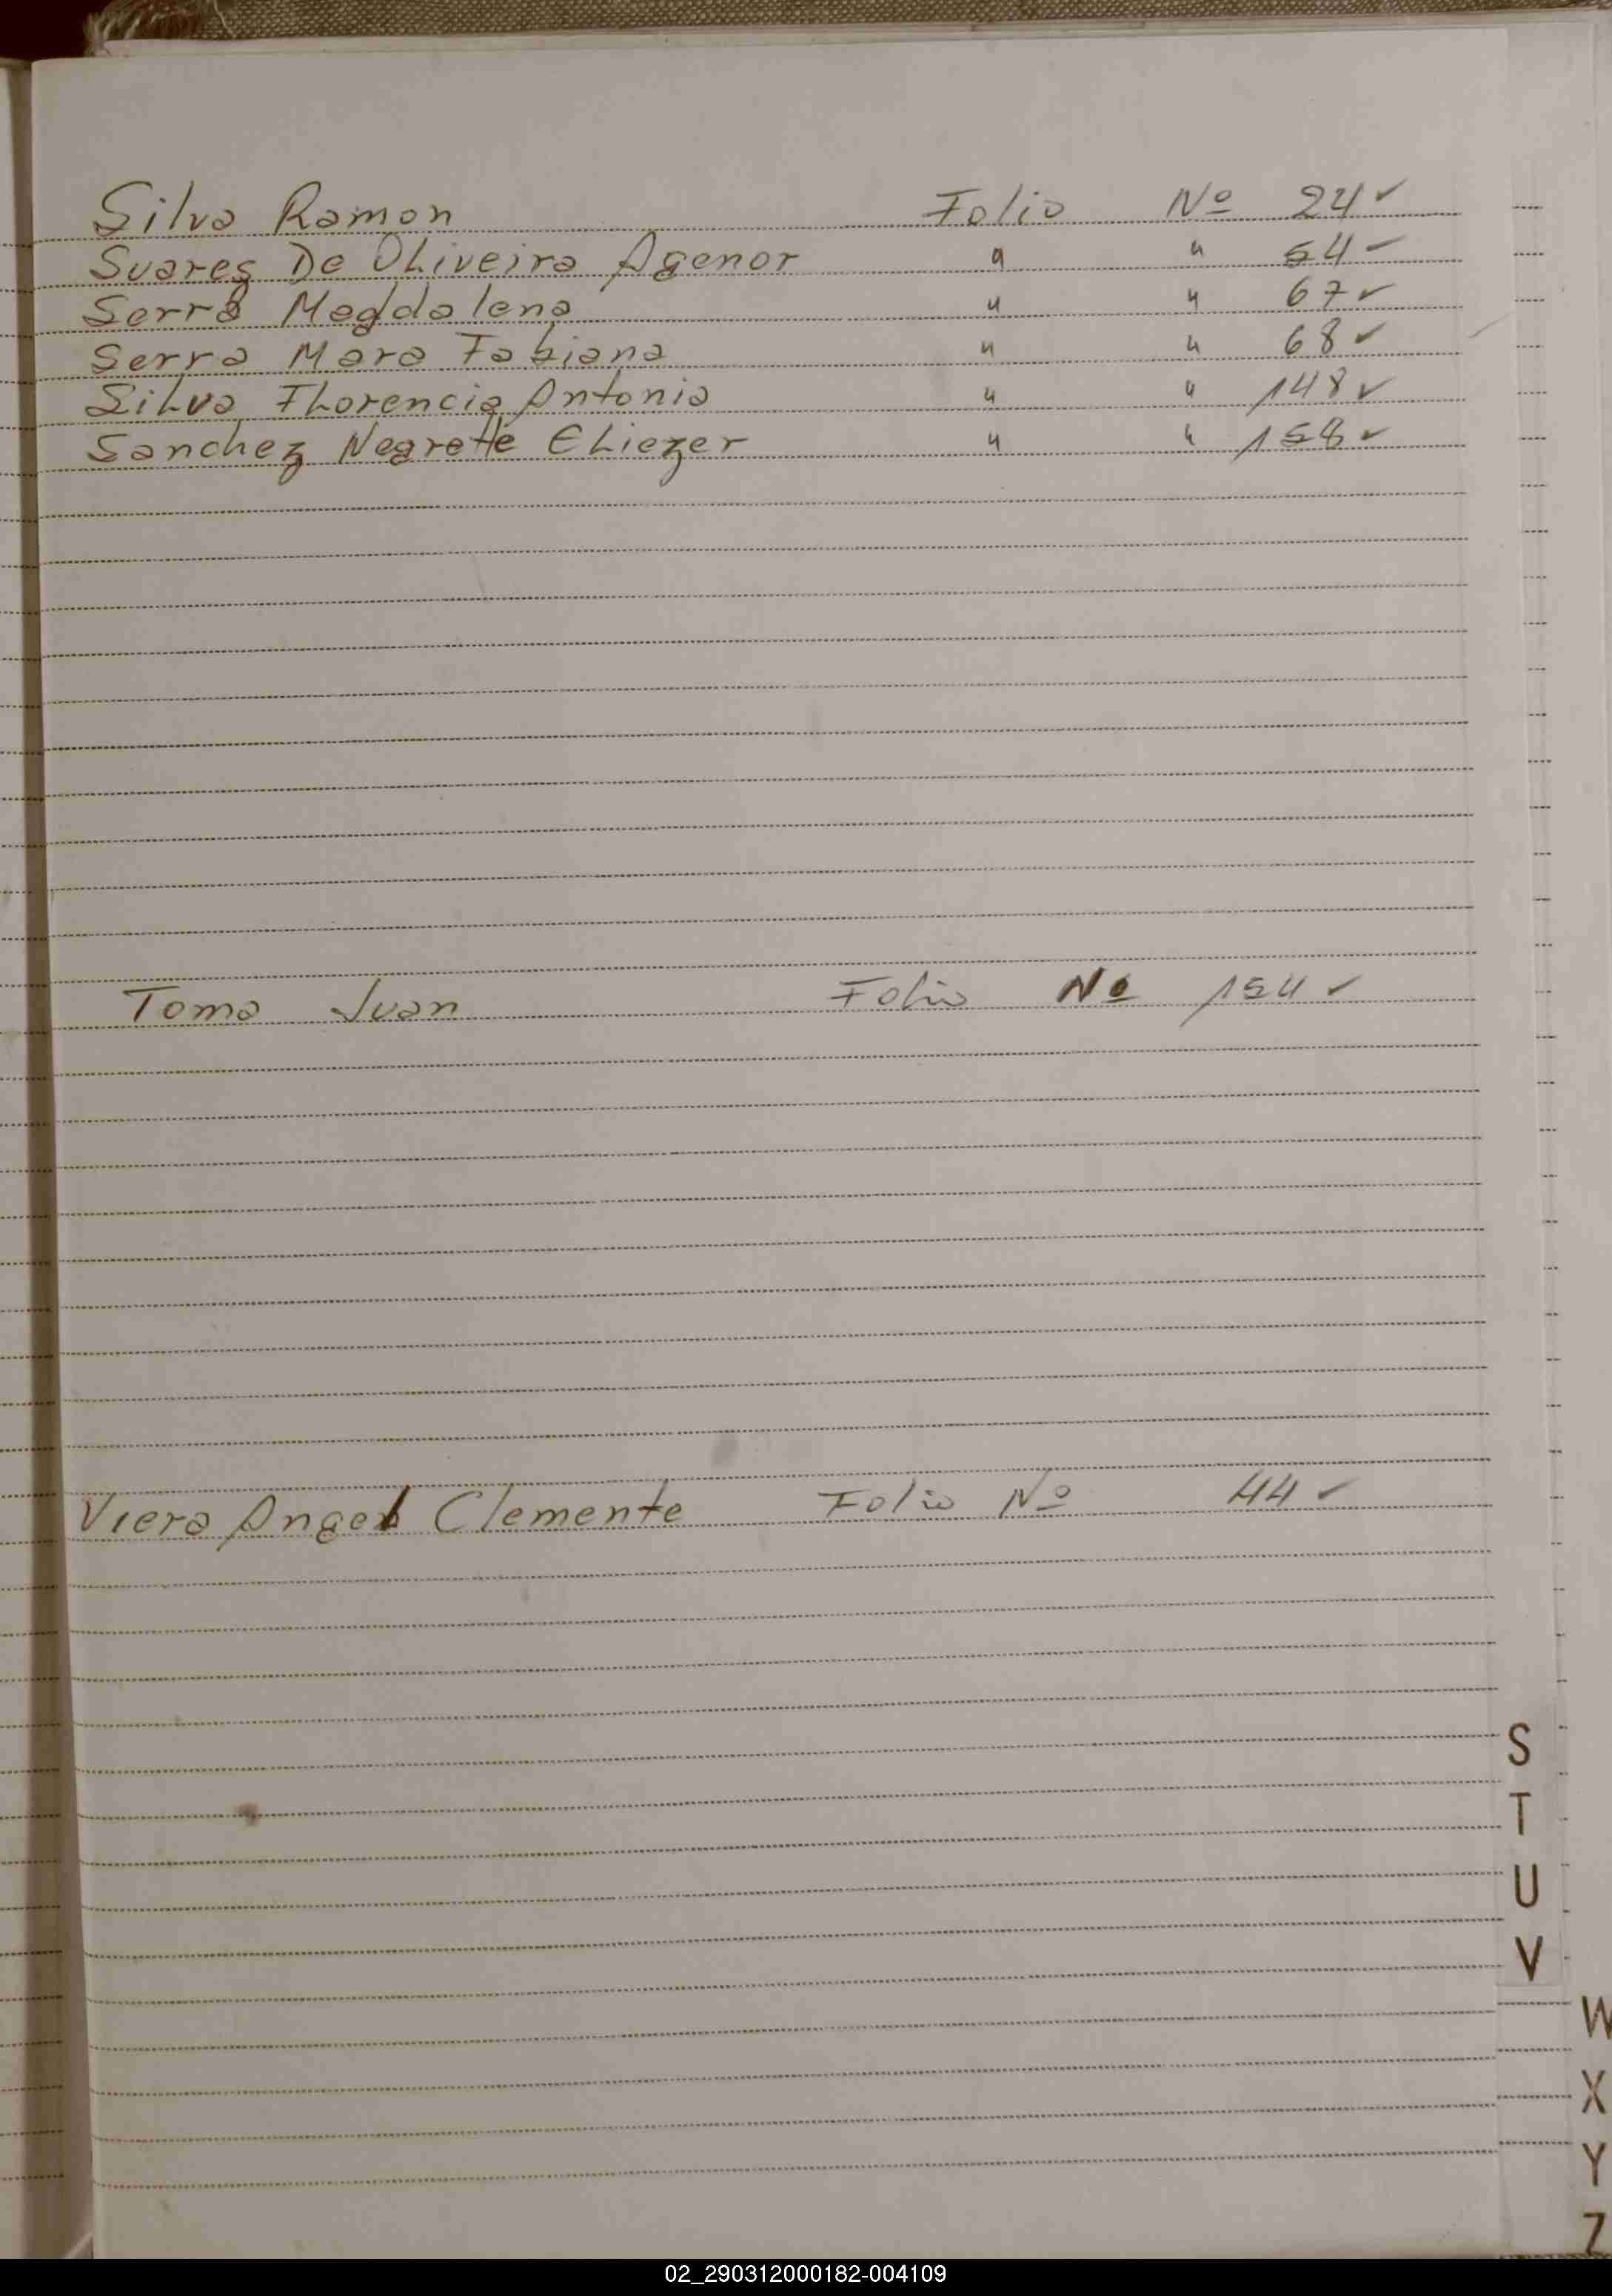 Silva Ramon Folio Nº 24 ✓
Suares De Oliveira Agenor " " 54 ✓
Serra Magdalena " " 67 ✓
Serra Mara Fabiana " " 68 ✓
Silva Florencia Antonia " " 148 ✓
Sanchez Negrette Eliezer " " 158 ✓
Toma Juan Folio Nº 154 ✓
Viera Angel Clemente Folio Nº 44 ✓
S
T
U
V
W
X
Y
Z
02_290312000182-004109